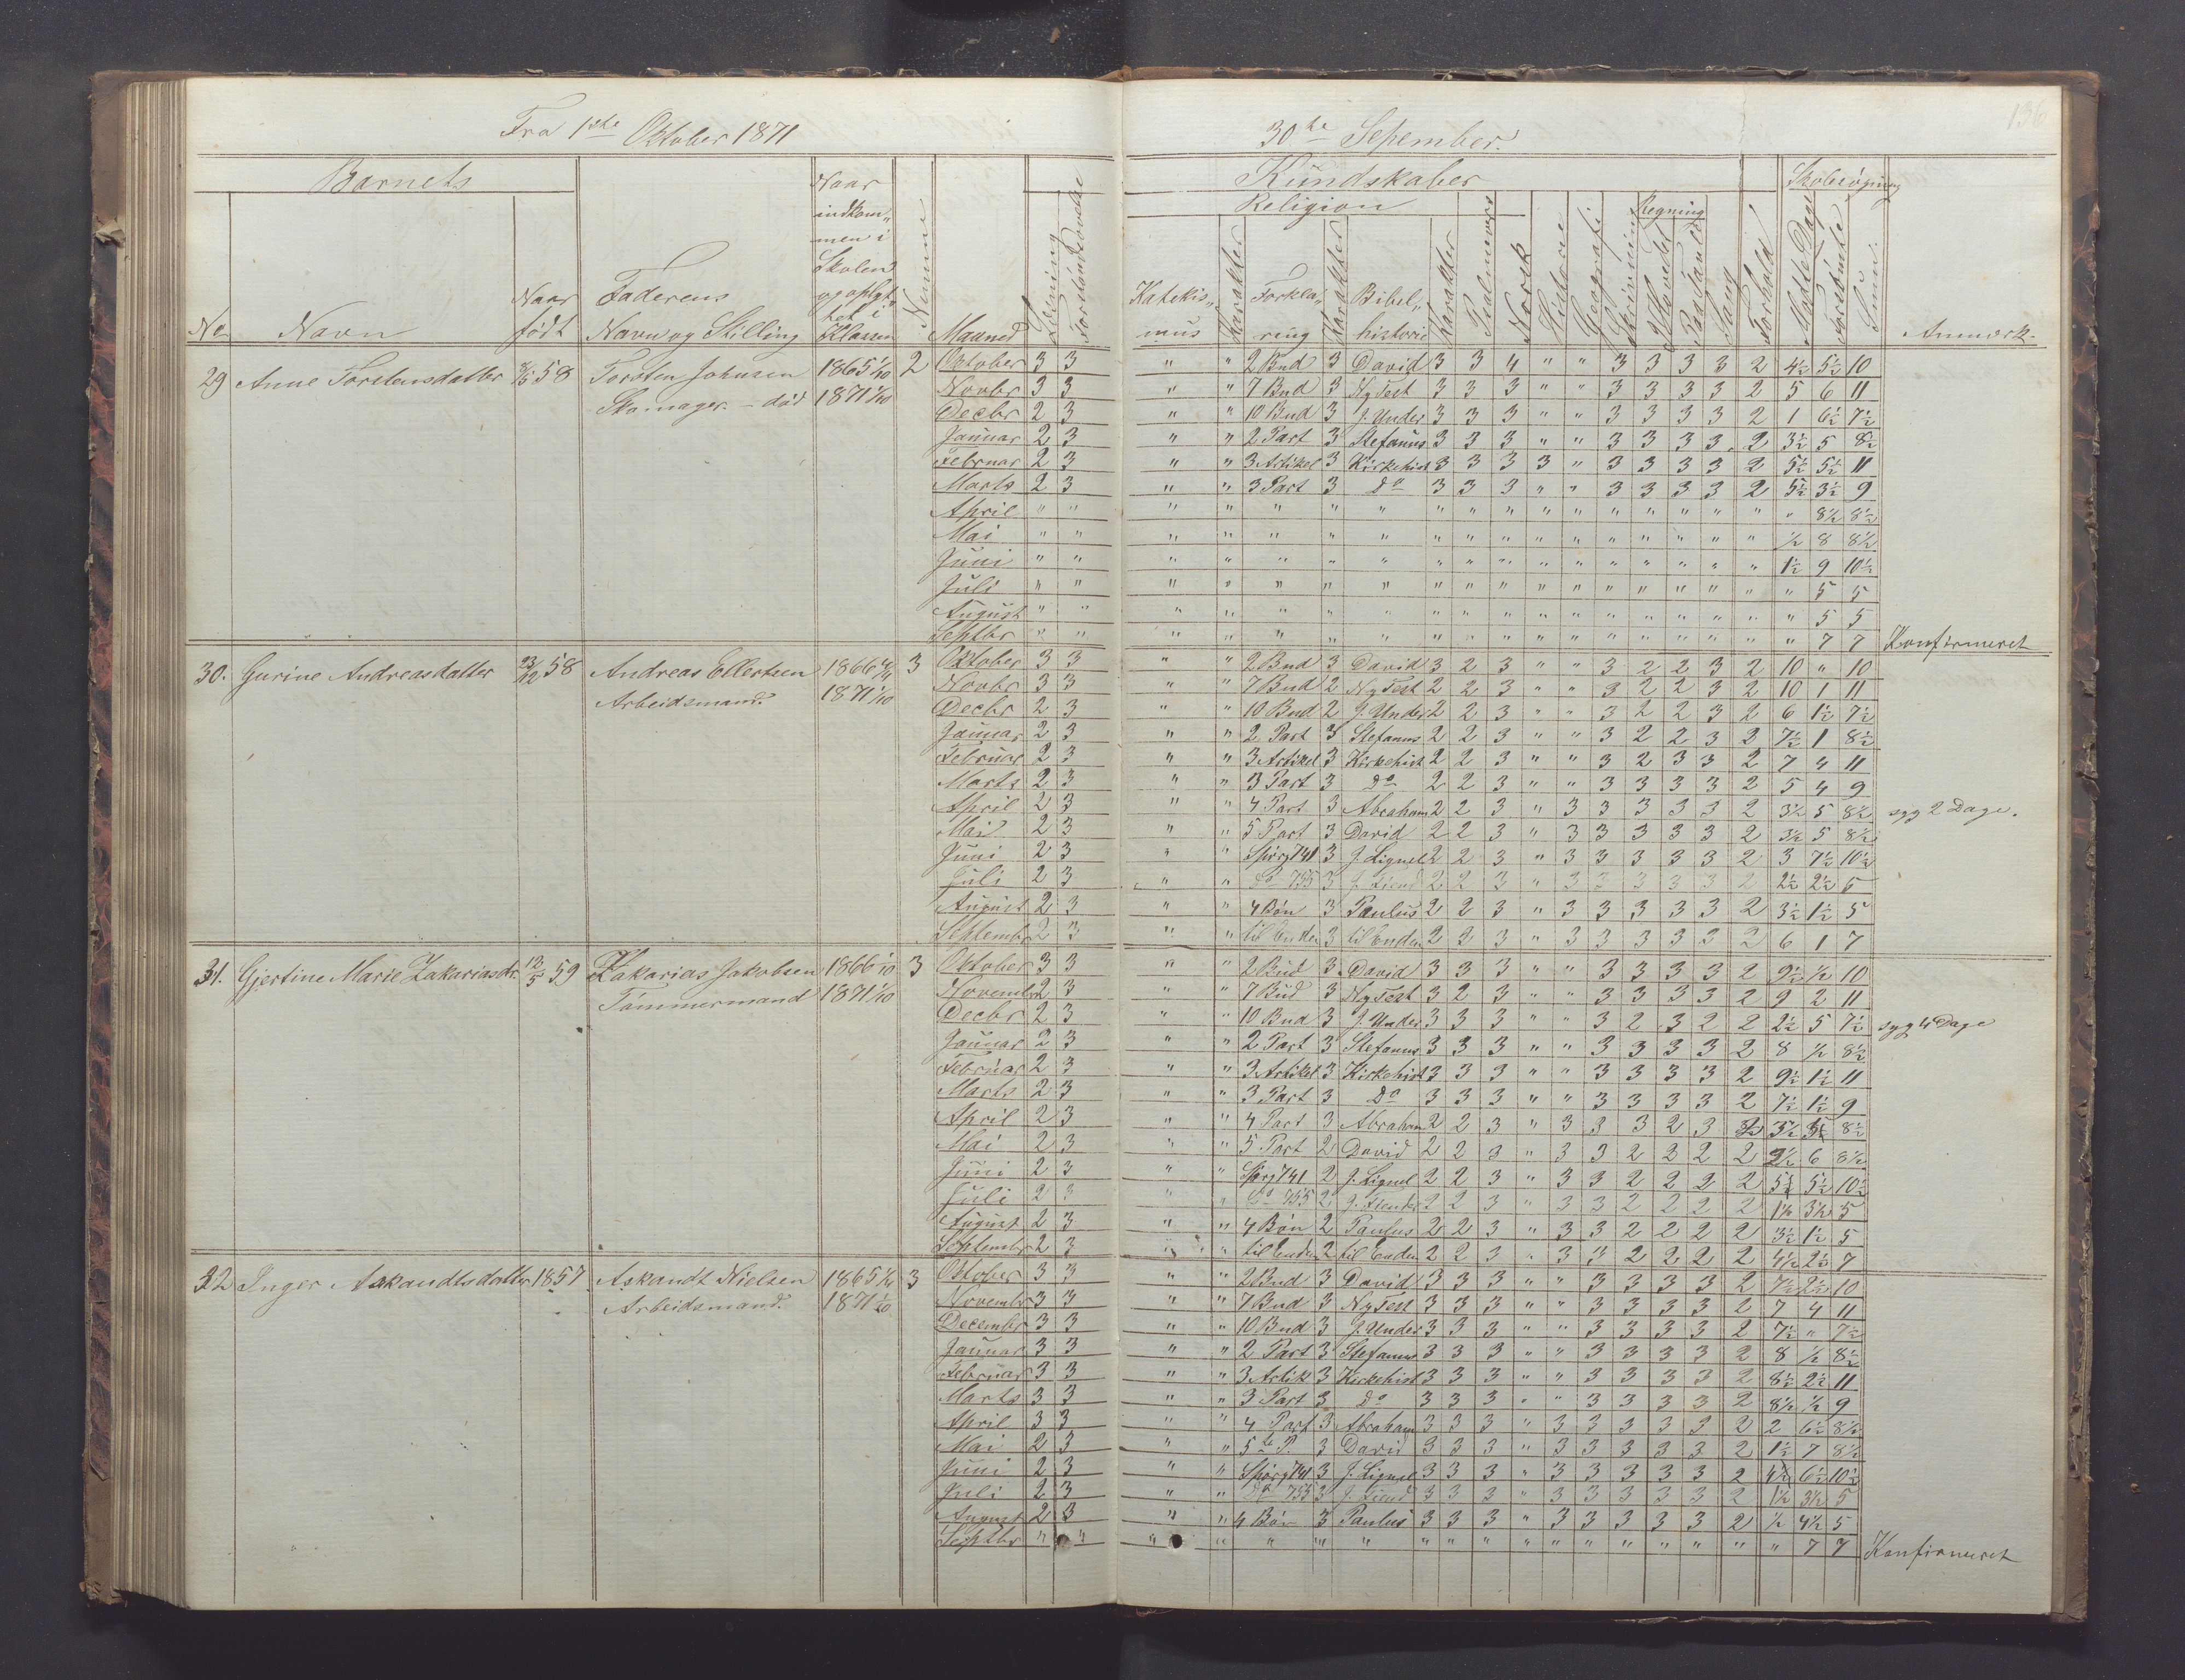 Fra 1ste Oktober 1871
30te Sepember.
136
Barnets
No
Navn
Naar født
Faderens
Navn og Stilling
Naar
indkom„
men i
Skolen
og opflyt„
tet i
Klassen
Numer
Maaned
Læsning
Forstandsøvelse
Kundskaber
Religion
Katekis„
mus
Karakter
Forkla„
ring
Karakter
Bibel„
historie
Karakter
Psalmevers
Norsk
Historie
Geografi
Skrivning
Regning
Hovedet
Paa Tavlen
Sang
Forhold
Skolesøgning
Mødte Dage
Forsømte
Summ.
Anmærk.
29 Anne Torstensdatter 58 Torsten Johnsen 1865 1/10 2 Oktober 3 3 " " 2 Bud 3 David 3 3 4 " " 3 3 3 3 2 4½ 5½ 10
Skomager. – død 1871 1/10 Novbr 3 3 " " 7 Bud 3 Ny Test 3 3 3 " " 3 3 3 3 2 5 6 11
Decbr 2 3 " " 10 Bud 3 J. Under 3 3 3 " " 3 3 3 3 2 1 6½ 7½
Januar 2 3 " " 2 Part 3 Stefanus 3 3 3 " " 3 3 3 3 2 3½ 5 8½
Februar 2 3 " " 3 Artikel 3 Kirkehist 3 3 3 3 " 3 3 3 3 2 5½ 5½ 11
Marts 2 3 " " 3 Part 3 Do 3 3 3 " " 3 3 3 3 2 5½ 3½ 9
April " " " " " " " " " " " " " " " " " " 8½ 8½
Mai " " " " " " " " " " " " " " " " " ½ 8 8½
Juni " " " " " " " " " " " " " " " " " 1½ 9 10½
Juli " " " " " " " " " " " " " " " " " " 5 5
August " " " " " " " " " " " " " " " " " " 5 5
Septbr " " " " " " " " " " " " " " " " " " 7 7 Konfirmeret
30. Gurine Andreasdatter 23/12 58 Andreas Ellertsen 1866 3 Oktober 3 3 " " 2 Bud 3 David 3 2 3 " " 3 2 2 3 2 10 " 10
Arbeidsmand. 1871 1/10 Novbr 3 3 " " 7 Bud 2 Ny Test 2 2 3 " " 3 2 2 3 2 10 1 11
Decbr 2 3 " " 10 Bud 2 J. Under 2 2 3 " " 3 2 2 3 2 6 1½ 7½
Januar 2 3 " " 2 Part 3 Stefanus 2 2 3 " " 3 2 2 3 2 7½ 1 8½
Februar 2 3 " " 3 Artikel 3 Kirkehist 2 2 3 " " 3 2 3 3 2 7 4 11
Marts 2 3 " " 3 Part 3 Do 2 2 3 " " 3 3 3 3 2 5 4 9
April 2 3 " " 4 Part 3 Abraham 2 2 3 " 3 3 3 3 3 2 3½ 5 8½ syg 2 Dage.
Mai 2 3 " " 5 Part 3 David 2 2 3 " 3 3 3 3 3 2 3½ 5 8½
Juni 2 3 " " Spörg 741 3 J. Lignel 2 2 3 " 3 3 3 3 3 2 3 7½ 10½
Juli 2 3 " " Do 755 3 J. Fiend 2 2 3 " 3 3 3 3 3 2 2½ 2½ 5
August 2 3 " " 4 Bön 3 Paulus 2 2 3 " 3 3 3 3 3 2 3½ 1½ 5
Septembr 2 3 " " til Enden 3 til Enden 2 2 3 " 3 3 3 3 2 2 6 1 7
31. Gjertine Marie Zakariasdr. 12/5 59 Zakarias Jakobsen 1866 1/10 3 Oktober 3 3 " " 2 Bud 3 David 3 3 3 " " 3 3 3 3 2 9½ ½ 10
Tømmermand 1871 1/10 Novembr 2 3 " " 7 Bud 3 Ny Test 3 2 3 " " 3 3 3 3 2 9 2 11
Decbr 2 3 " " 10 Bud 3 J. Under 3 3 3 " " 3 2 3 2 2 2½ 5 7½ syg 4 Dage
Januar 2 3 " " 2 Part 3 Stefanus 3 3 3 " " 3 3 3 3 2 8 ½ 8½
Februar 2 3 " " 3 Artikel 3 Kirkehist 3 3 3 " " 3 3 3 3 2 9½ 1½ 11
Marts 2 3 " " 3 Part 3 Do 3 3 3 " " 3 3 3 3 2 7½ 1½ 9
April 2 3 " " 4 Part 3 Abraham 2 2 3 " 3 3 3 2 3 8½
Mai 2 3 " " 5 Part 2 David 2 2 3 " 3 3 2 2 2 2 2½ 6 8½
Juni 2 3 " " Spörg 741 2 J. Lignel 2 2 3 " 3 3 2 2 2 2 5½ 10½
Juli 2 3 " " Do 755 2 J. Fiender 2 2 3 " 3 3 2 2 2 2 1½ 3½ 5
August 2 3 " " 4 Bön 2 Paulus 2 2 3 " 3 3 2 2 2 2 3½ 1½ 5
Septembr 2 3 " " til Enden 2 til Enden 2 2 3 " 3 " 2 2 2 2 4½ 2½ 7
32 Inger Askandtsdatter 1857 Askandt Nielsen 1865 1/10 3 Oktober 3 3 " " 2 Bud 3 David 3 3 3 " " 3 3 3 3 2 7½ 2½ 10
Arbeidsmand. 1871 1/10 Novembr 3 3 " " 7 Bud 3 Ny Test 3 3 3 " " 3 3 3 3 2 7 4 11
Decembr 3 3 " " 10 Bud 3 J. Under 3 3 3 " " 3 3 3 3 2 7½ " 7½
Januar 3 3 " " 2 Part 3 Stefanus 3 3 3 " " 3 3 3 3 2 8 ½ 8½
Februar 3 3 " " 3 Artik 3 Kirkehist 3 3 3 " " 3 3 3 3 2 8½ 2½ 11
Marts 3 3 " " 3 Part 3 Do 3 3 3 " " 3 3 3 3 2 8½ ½ 9
April 3 3 " " 4 Part 3 Abraham 3 3 3 " 3 3 3 3 3 2 2 6½ 8½
Mai 2 3 " " 5te P. 3 David 3 3 3 " 3 3 3 3 3 2 1½ 7 8½
Juni 2 3 " " Spörg 741 3 J. Lignel 3 3 3 " 3 3 3 3 3 2 4½ 6½ 10½
Juli 2 3 " " Do 755 3 J. Fiend 3 3 3 " 3 3 3 3 3 2 1½ 3½ 5
August 2 3 " " 4 Bön 3 Paulus 3 3 3 " 3 3 3 3 3 2 ½ 4½ 5
Septbr " " " " " " " " " " " " " " " " " " 7 7 Konfirmeret